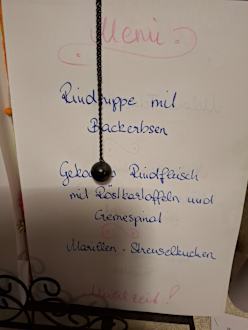 Menü
Rindsuppe mit
Backerbsen
Rindfleisch
mit Röstkartoffeln und
Cremespinat
Marillen - Streuselkuchen
Mahlzeit!